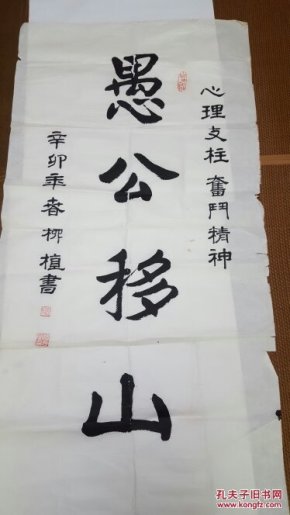 心理支柱 奮鬥精神
愚公移山
辛卯年春柳植書
孔夫子旧书网
kongfz.com